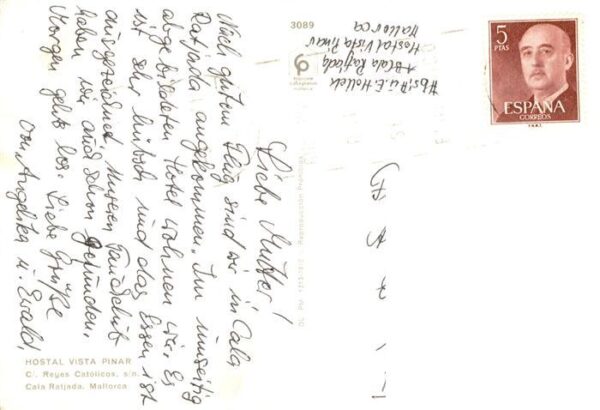 Liebe Mutter!
Nach gutem Flug sind wir in Cala
Ratjada angekommen. Im umseitig
abgebildeten Hotel wohnen wir. Es
ist sehr hübsch und das Essen ist
ausgezeichnet. Unseren Tauchclub
haben wir auch schon gefunden.
Morgen geht's los. Liebe Grüße
von Angelika u. Ewald.
HOSTAL VISTA PINAR
C/. Reyes Católicos, s/n.
Cala Ratjada, Mallorca
3089
Reproducción Prohibida
Abs.: A. u. E. Hollek
Cala Ratjada
Hostal Vista Pinar
Mallorca
5
PTAS
ESPAÑA
CORREOS